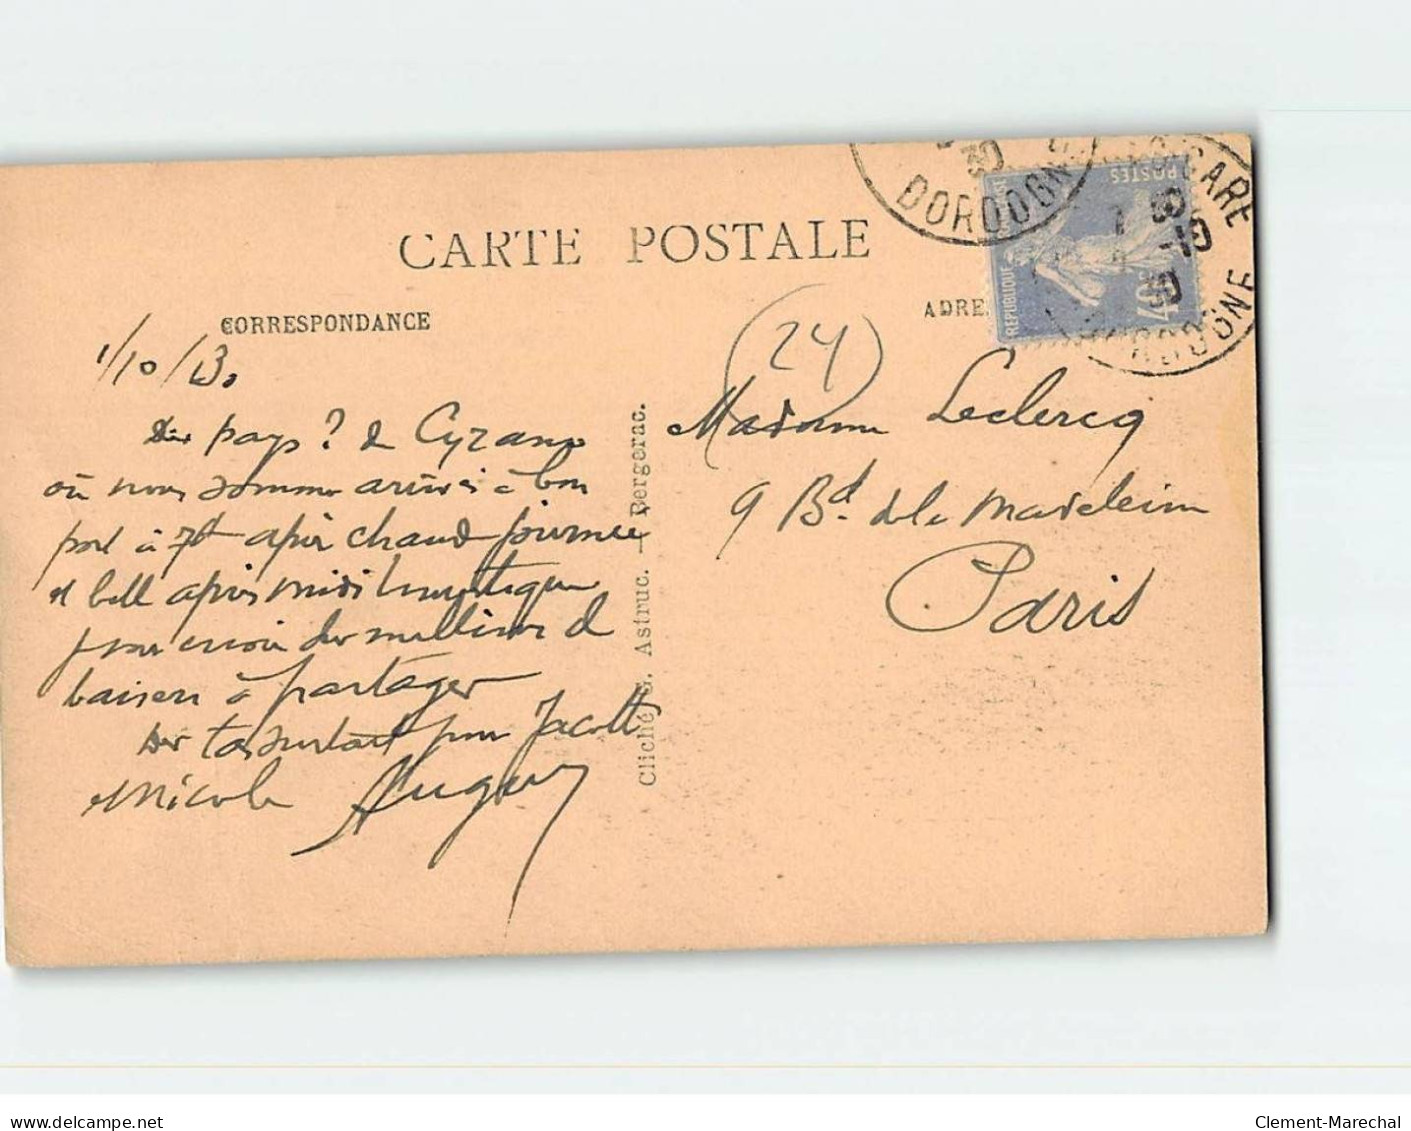 DORDOGN
GARE
-10
30
30
DORDOGNE
POSTES
REPUBLIQUE
40c
CARTE POSTALE
CORRESPONDANCE
ADRE
1/10/30
pays ? de Cyrano
où nous sommes arrivés à bon
port à 7h après chaude journée
et belle après midi
pour envoi des milliers de
baisers à partager
surtout pour Jacott
et Nicole
Cliché G. Astruc. — Bergerac.
(24)
Madame Leclercq
9 Bd. de la Madeleine
Paris
delcampe.net
Clement-Marechal